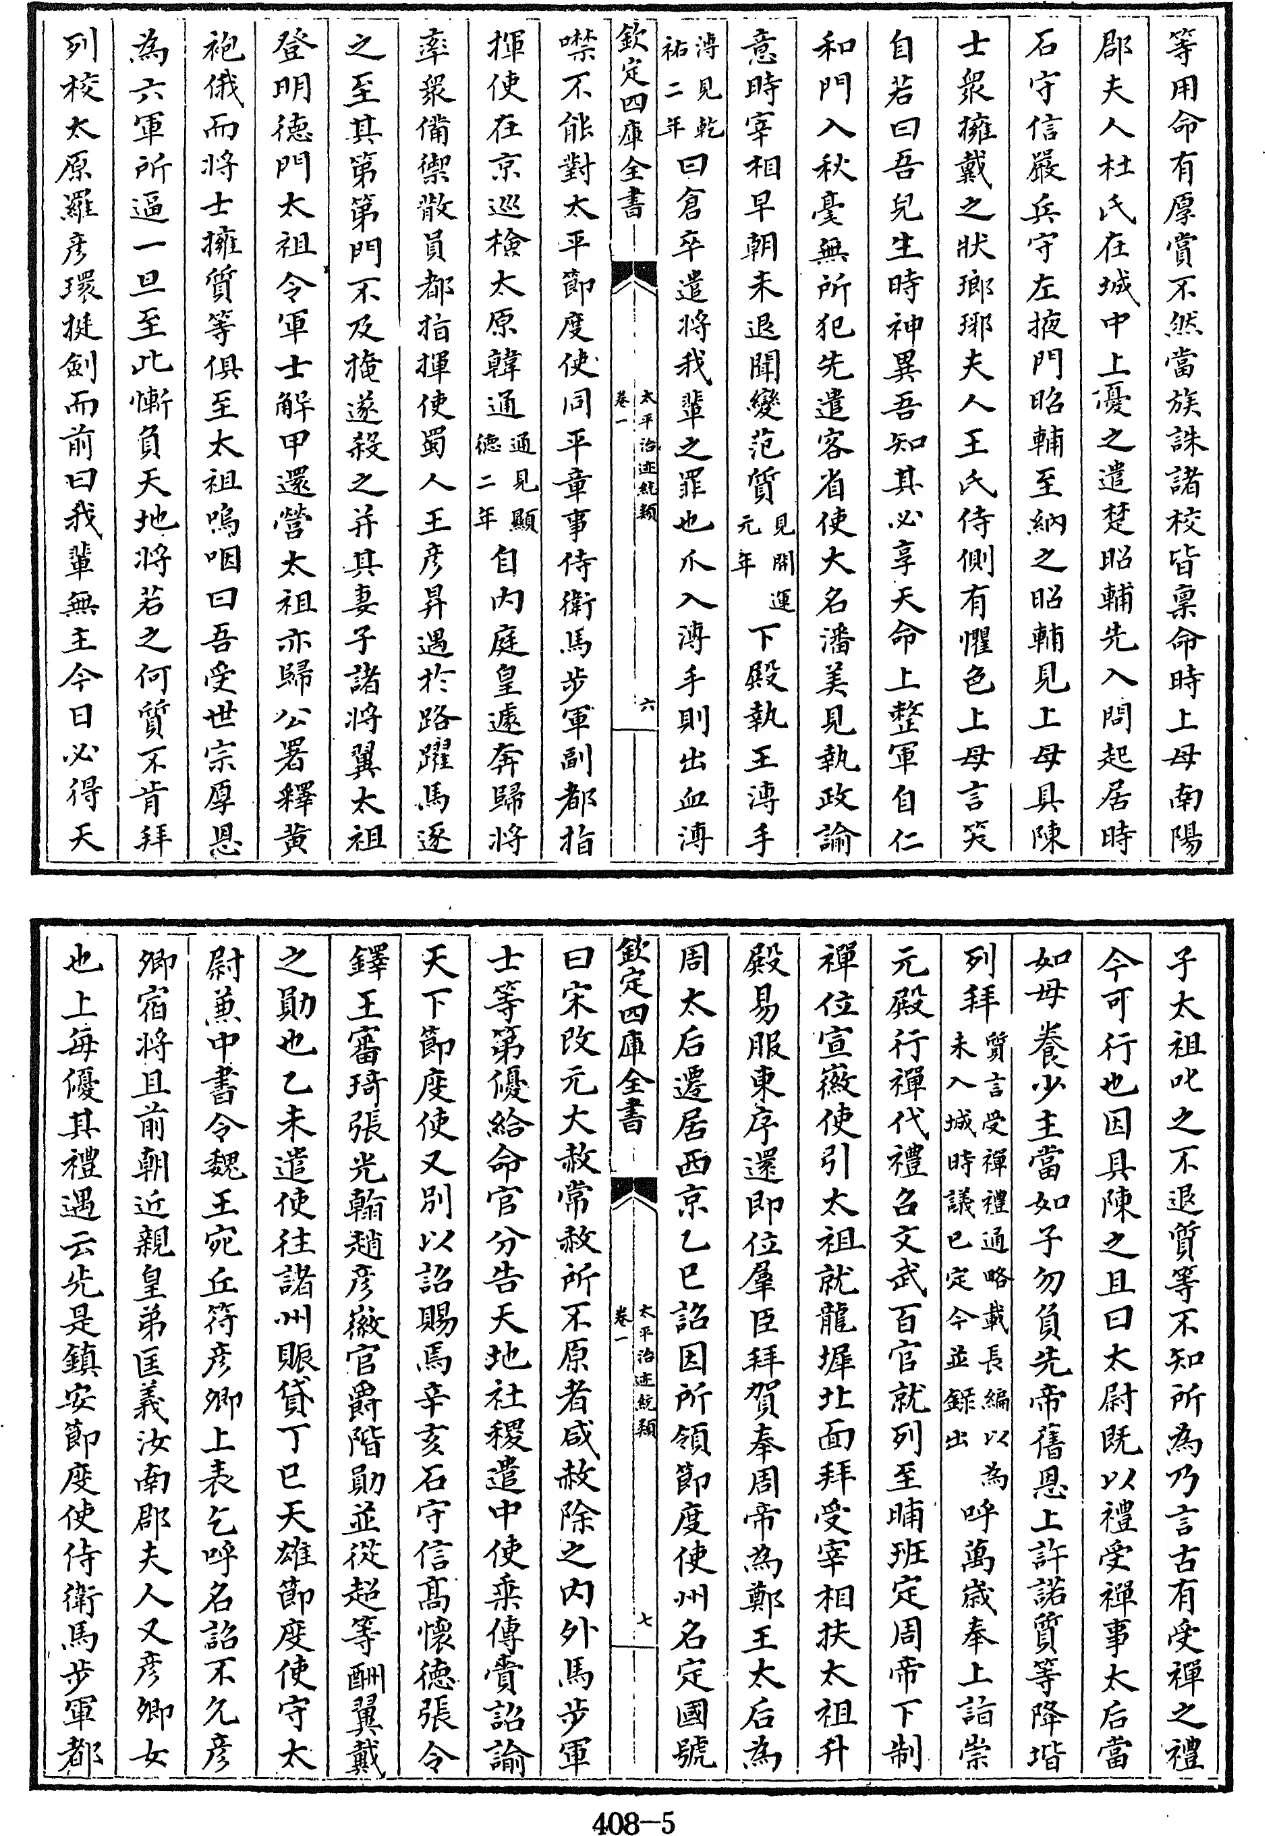 等用命有厚賞不然當族誅諸校皆稟命時上母南陽
郡夫人杜氏在城中上憂之遣楚昭輔先入問起居時
石守信嚴兵守左掖門昭輔至納之昭輔見上母具陳
士衆擁戴之狀瑯琊夫人王氏侍側有懼色上母言笑
自若曰吾兒生時神異吾知其必享天命上整軍自仁
和門入秋毫無所犯先遣客省使大名潘美見執政諭
意時宰相早朝未退聞變范質見開運元年下殿執王溥手
溥見乾祐二年曰倉卒遣將我輩之罪也爪入溥手則出血溥
欽定四庫全書
太平治迹統類
卷一
六
噤不能對太平節度使同平章事侍衛馬步軍副都指
揮使在京巡檢太原韓通通見顯德二年自内庭皇遽奔歸將
率衆備禦散員都指揮使蜀人王彦昇遇於路躍馬逐
之至其第第門不及掩遂殺之并其妻子諸將翼太祖
登明德門太祖令軍士解甲還營太祖亦歸公署釋黄
袍俄而將士擁質等俱至太祖嗚咽曰吾受世宗厚恩
為六軍所逼一旦至此慚負天地將若之何質不肯拜
列校太原羅彦環挺劍而前曰我輩無主今日必得天
子太祖叱之不退質等不知所為乃言古有受禪之禮
今可行也因具陳之且曰太尉既以禮受禪事太后當
如母養少主當如子勿負先帝舊恩上許諾質等降堦
列拜質言受禪禮通略載長編以為未入城時議已定今並錄出呼萬歲奉上詣崇
元殿行禪代禮召文武百官就列至晡班定周帝下制
禪位宣徽使引太祖就龍墀北面拜受宰相扶太祖升
殿易服東序還即位羣臣拜賀奉周帝為鄭王太后為
周太后遷居西京乙巳詔因所領節度使州名定國號
欽定四庫全書
太平治迹統類
卷一
七
曰宋改元大赦常赦所不原者咸赦除之内外馬步軍
士等第優給命官分告天地社稷遣中使乘傳賫詔諭
天下節度使又别以詔賜焉辛亥石守信髙懷德張令
鐸王審琦張光翰趙彦徽官爵階勛並從超等酬翼戴
之勛也乙未遣使往諸州賑貸丁巳天雄節度使守太
尉兼中書令魏王宛丘符彦卿上表乞呼名詔不允彦
卿宿將且前朝近親皇弟匡義汝南郡夫人又彦卿女
也上每優其禮遇云先是鎮安節度使侍衛馬步軍都
408-5